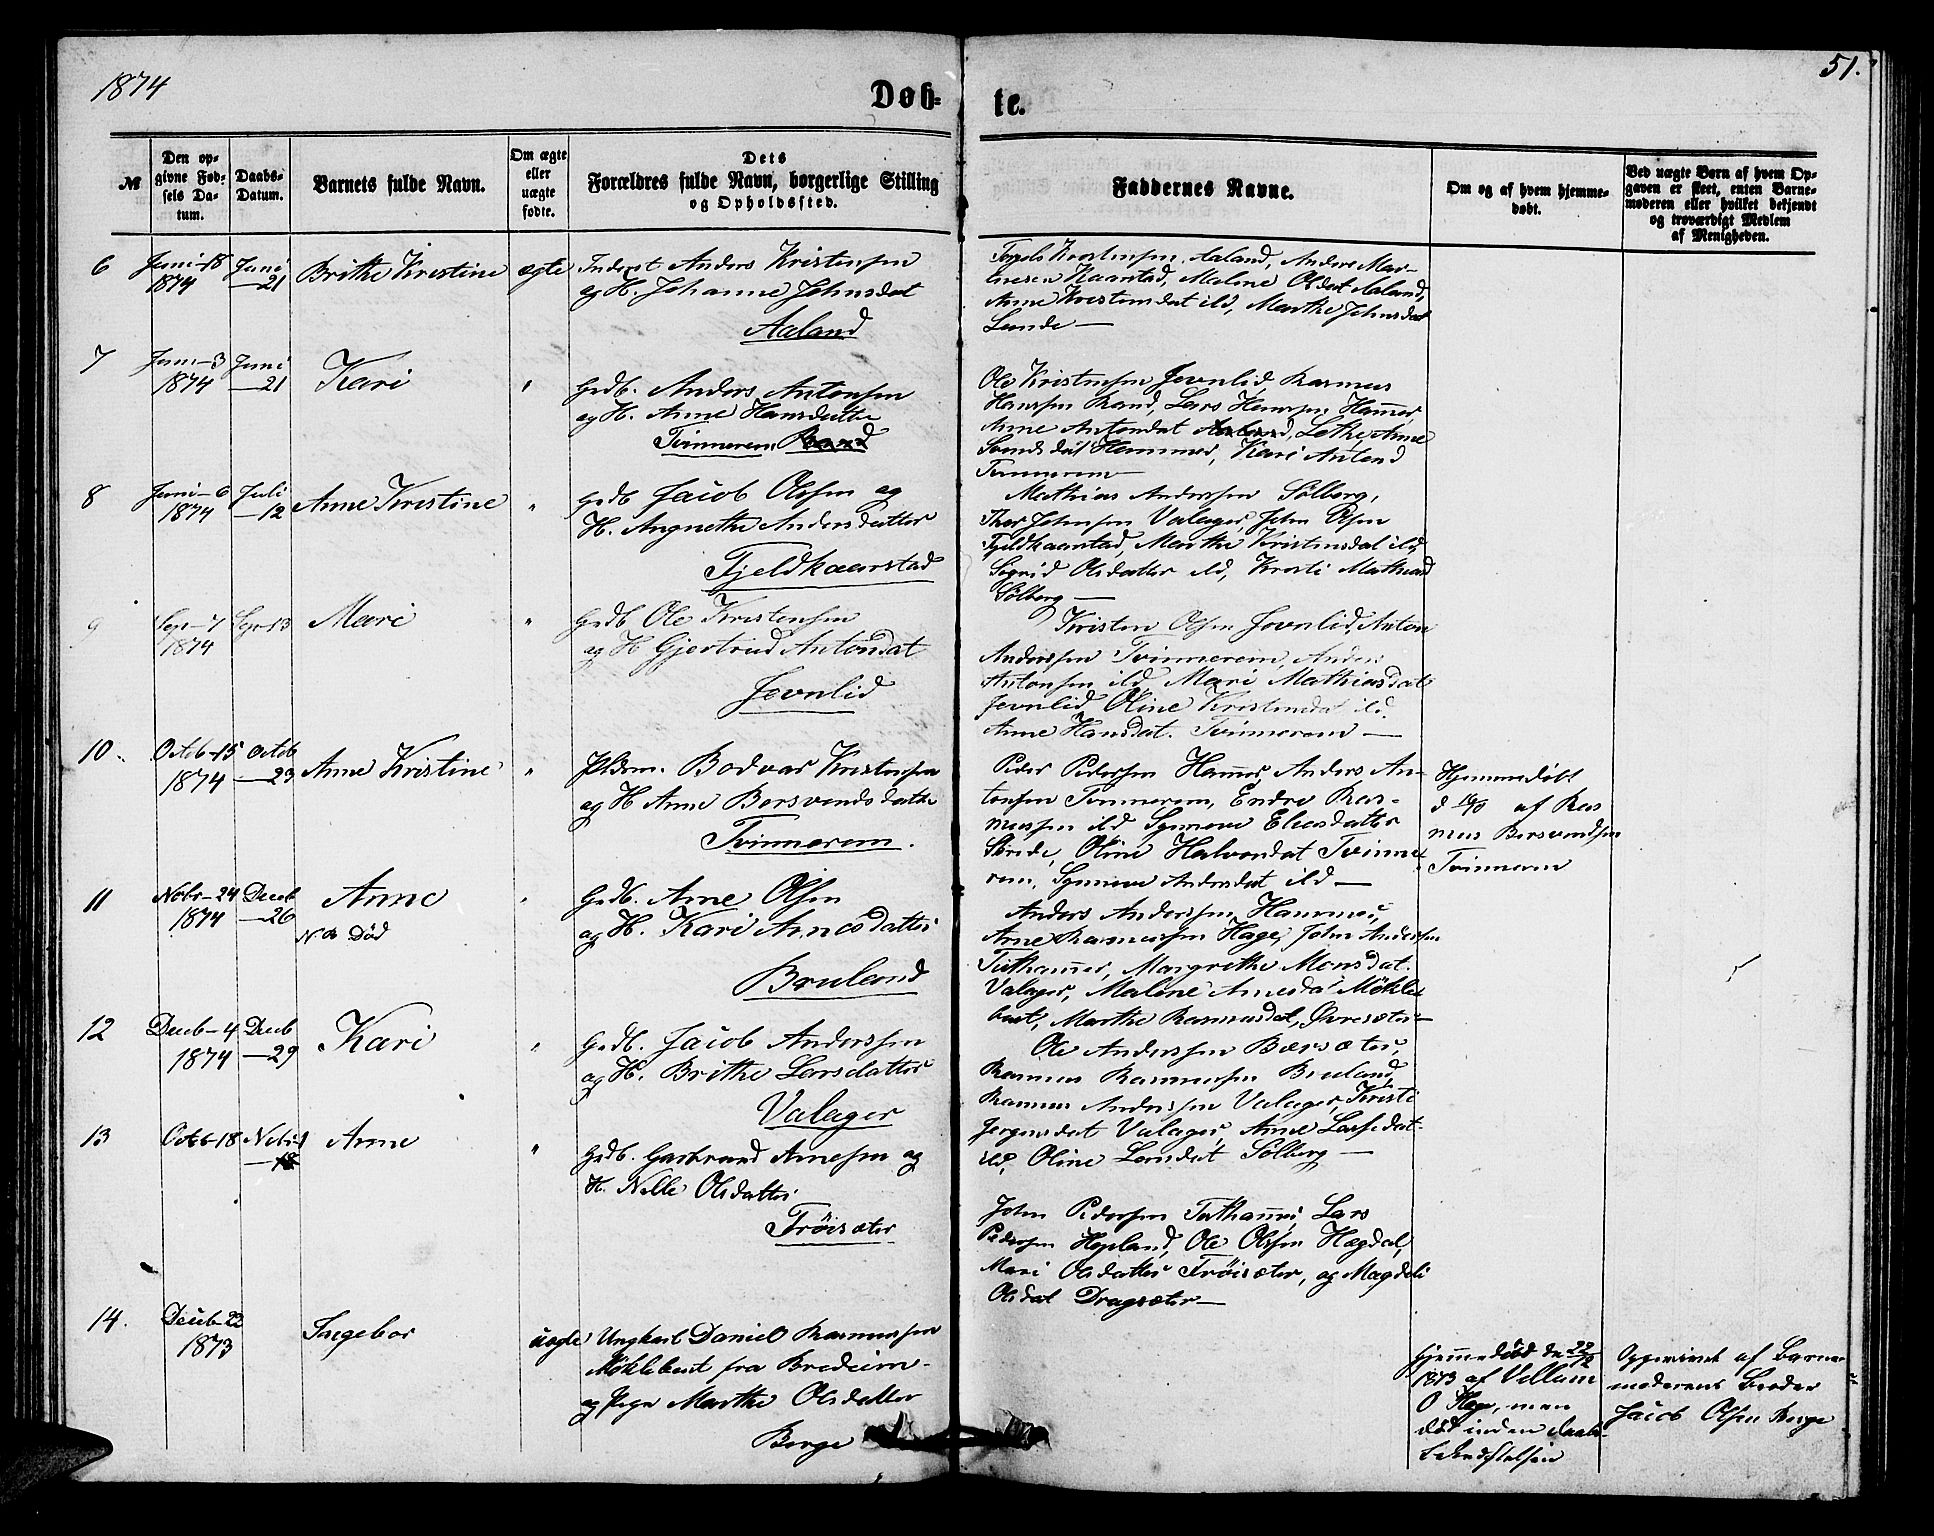 1874
Døb-
te.
51.
№
Den op-
givne Fød-
sels Da-
tum.
Daabs-
Datum.
Barnets fulde Navn.
Om ægte
eller
uægte
fødte.
Dets
Forældres fulde Navn, borgerlige Stilling
og Opholdssted.
Faddernes Navne.
Om og af hvem hjemme-
døbt.
Ved uægte Børn af hvem Op-
gaven er skeet, enten Barne-
moderen eller hvilket bekjendt
og troværdigt Medlem
af Menigheden.
6
Juni-18
1874
Juni
—21
Brithe Kristine
ægte
Inderst Anders Kristensen
og H. Johanne Johnsdat
Aaland
Kristensen Aaland, Anders Mar-
Kaarstad, Malene Olsdat Aaland,
Anne Kristensdat ibd, Marthe Johnsdat
Lunde —
7
Juni-3
1874
Juni
—21
Kari
"
Grdb. Anders Antonsen
og H. Anne Hansdatter
Tvinnerem Rand
Ole Kristensen Jevnlid, Rasmus
Hanssen Rand, Lars Hanssen Hammer,
Anne Antondat Lothe, Anne
Hammer, Kari Antond
Tvinnerem —
8
Juni-6
1874
Juli
—12
Anne Kristine
"
Grdb Jacob Olssen og
H. Angnethe Andersdatter
Fjeldkaarstad
Mathias Anderssen Sölberg,
Thor Johnsen Valager, John Olsen
Fjeldkaarstad, Marthe Kristensdat ibd,
Sigrid Olsdatter ibd, Kristi Mathiasd
Sölberg —
9
Sep-7
1874
Sep-13
Mari
"
Grdb Ole Kristensen
og H Gjertrud Antondat
Jevnlid
Kristen Olsen Jevnlid, Anton
Anderssen Tvinnerem, Anders
Antonsen ibd Mari Mathiasdat
Jevnlid Oline Kristensdat ibd.
Anne Hansdat. Tvinnerem —
10.
Octb-15
1874
Octb
—23
Anne Kristine
"
Plsm. Bodvar Kristensen
og H Anne Borsvendsdatter
Tvinnerem.
Peder Pedersen Hammer, Anders An-
tonsen Tvinnerem, Endre Ras-
mussen ibd Synneve Eliasdatter
Skrede, Oline Halvordat Tvinne-
rem, Synneve Andersdat ibd —
Hjemmedöbt
d 16/10 af Ras
mus Borsvendsen
Tvinnerem
11
Nobr-24
1874
Decb
—26
Anne
Død
"
Grdb. Arne Olsen
og H. Kari Arnesdatter
Bruland
Anders Anderssen Hammer,
Arne Rasmussen Hage, John Anderssen
Tuthammer, Margrethe Monsdat.
Valager, Malene Arnesdat Møkle
bust, Marthe Rasmusdat, Øvresæter —
12
Decb-4
1874
Decb
—29
Kari
"
Grdb. Jacob Anderssen
og H. Brithe Larsdatter
Valager
Ole Anderssen Bærsæter,
Rasmus Rasmussen Bruland,
Rasmus Anderssen Valager, Kristi
Jørgensdat Valager, Anne Larsdat
ibd, Oline Larsdat Sölberg —
13
Octb-18
Nobr-1
Anne
"
Grdb. Garbrand Arnesen og
H. Nille Olsdatter
Tröisæter
John Pedersen Tuthammer, Lars
Pedersen Hopland, Ole Olssen Hægdal,
Mari Olsdatter Tröisæter, og Magdeli
Olsdat Dragsæter —
14.
Decb-22
1873
Ingebor
uægte
Ungkarl Daniel Rasmussen
Møklebust fra Bredeim
og Pige Marthe Olsdatter
Berge
Hjemmedöbt den 22/12
1873 af Vellum
O Hage, men
död inden daabs-
bekræftelsen
Oppgivet af Barne-
moderens Broder
Jacob Olsen Berge